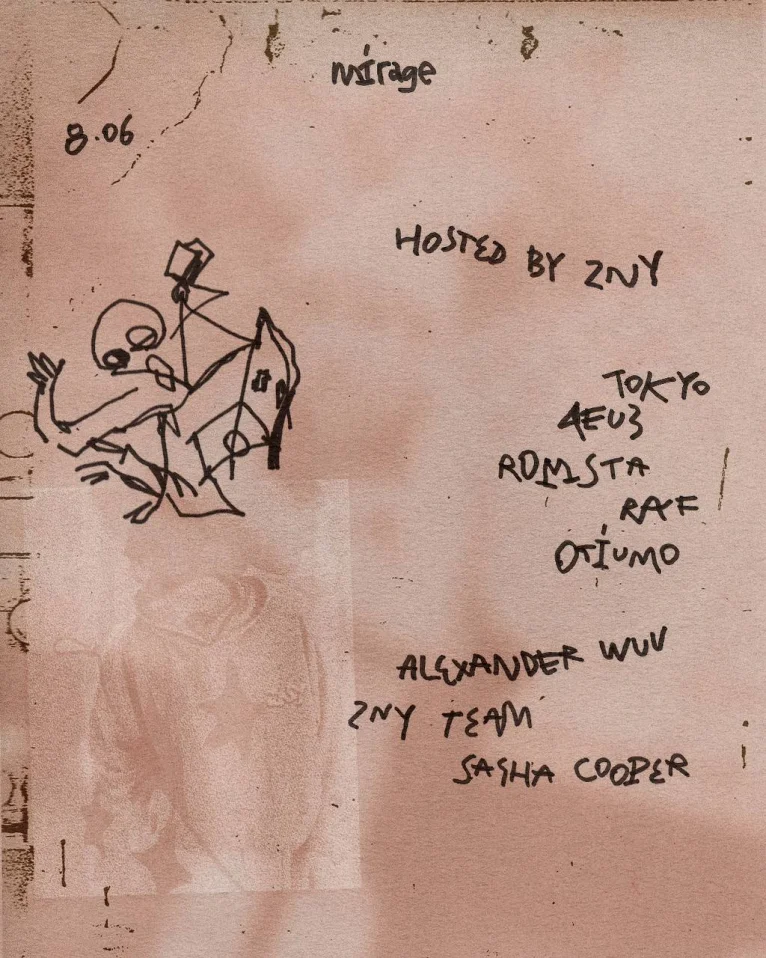 mirage
8.06
HOSTED BY ZNY
TOKYO
4EU3
ROMISTA
RAF
OTIUMO
ALEXANDER WUV
ZNY TEAM
SASHA COOPER